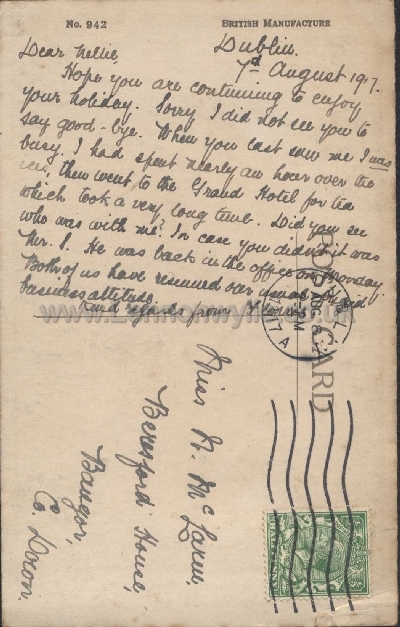 No. 942
BRITISH MANUFACTURE
Dublin.
7th August 1917.
Dear Nellie,
Hope you are continuing to enjoy
your holiday. Sorry I did not see you to
say good-bye. When you last saw me I was
busy. I had spent nearly an hour over the
ices, then went to the Grand Hotel for tea
which took a very long time. Did you see
who was with me? In case you didn't it was
Mr. P. He was back in the office on Monday.
Both of us have resumed our usual
business attitude.
Kind regards from
POST CARD
Miss N. McLaren,
Beresford House,
Bangor,
Co. Down.